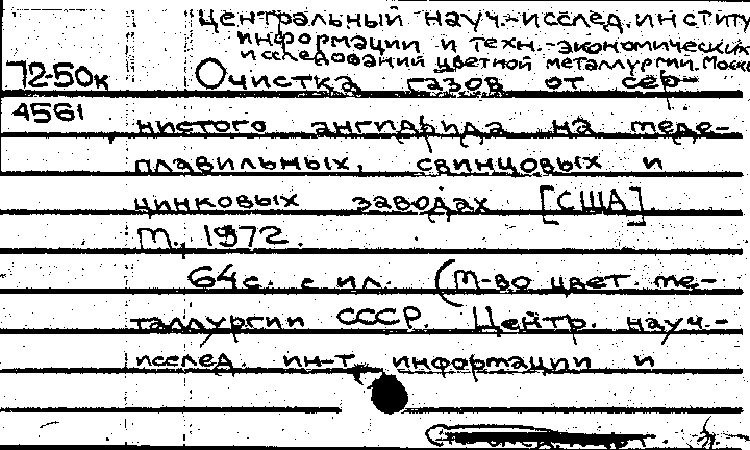 Центральный науч.-исслед. институ
информации и техн.-экономических
исследований цветной металлургии. Москв
72-50к Очистка газов от сер-
4561
нистого ангидрида на меде-
плавильных, свинцовых и
цинковых заводах [США].
М., 1972.
64с. с ил. (М-во цвет. ме-
таллургии СССР. Центр. науч.-
исслед. ин-т информации и